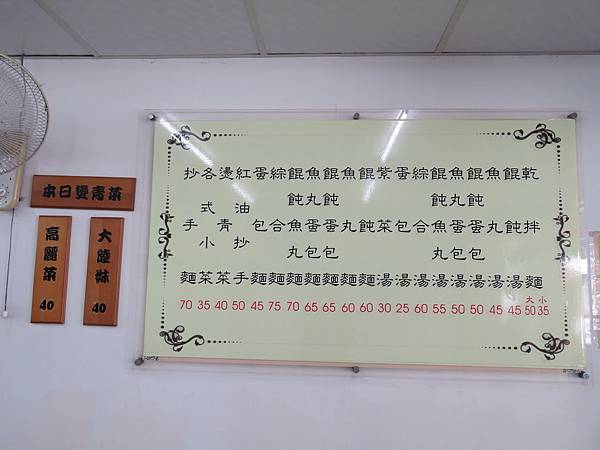 本日燙青菜
大陸妹 40
高麗菜 40
乾拌麵 大50 小35
餛飩湯 45
魚丸湯 45
餛飩蛋包湯 50
魚丸蛋包湯 50
餛飩魚丸湯 55
綜合湯 60
蛋包湯 25
紫菜湯 30
餛飩麵 60
魚丸麵 60
餛飩蛋包麵 65
魚丸蛋包麵 65
餛飩魚丸麵 70
綜合麵 75
蛋包麵 45
紅油抄手 50
燙青菜 40
各式小菜 35
抄手麵 70